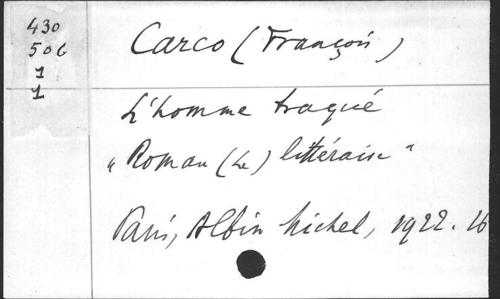 430
506
1
1
Carco (François)
L'homme traqué
"Roman (Le) littéraire"
Paris, Albin Michel, 1922. 16